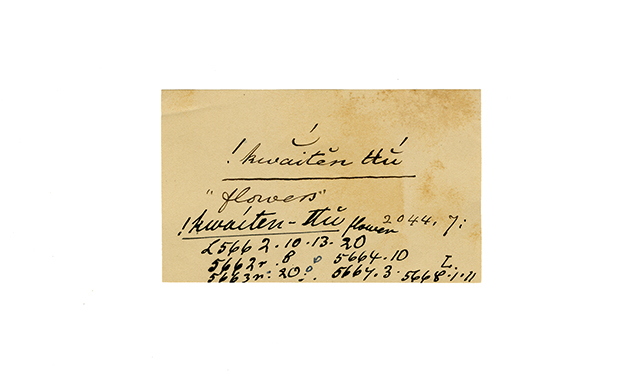 !kwắítĕn ttŭ́
"flowers"
!kwáĭten-ttŭ flower 2044. 7:
L5662.10.13.20
5662r.8 5664.10 L.
5663r.20. 5667.3.5668.1.11